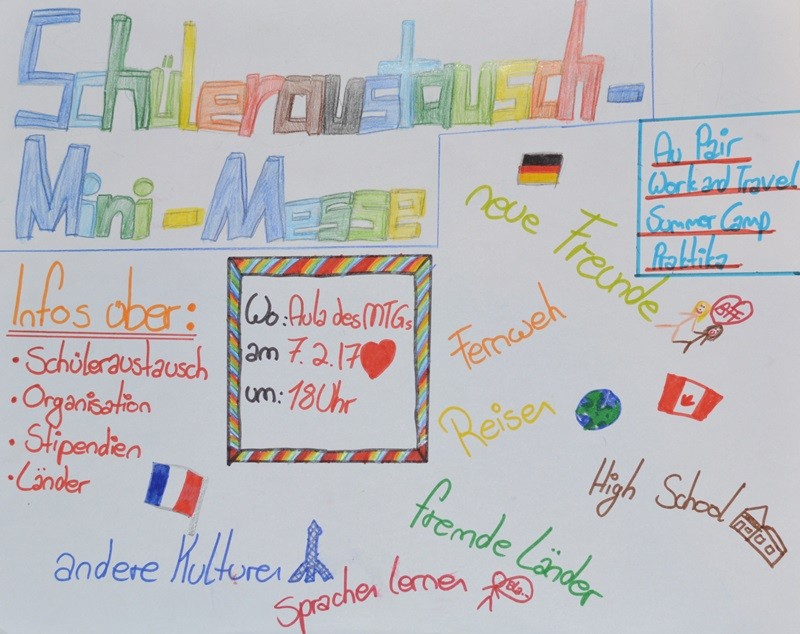 Schüleraustausch-
Mini-Messe
Au Pair
Work and Travel
Summer Camp
Praktika
neue Freunde
Infos über:
• Schüleraustausch
• Organisation
• Stipendien
• Länder
Wo: Aula des MTGs
am 7.2.17
um: 18 Uhr
Fernweh
Reisen
High School
fremde Länder
andere Kulturen
Sprachen lernen
Bla..